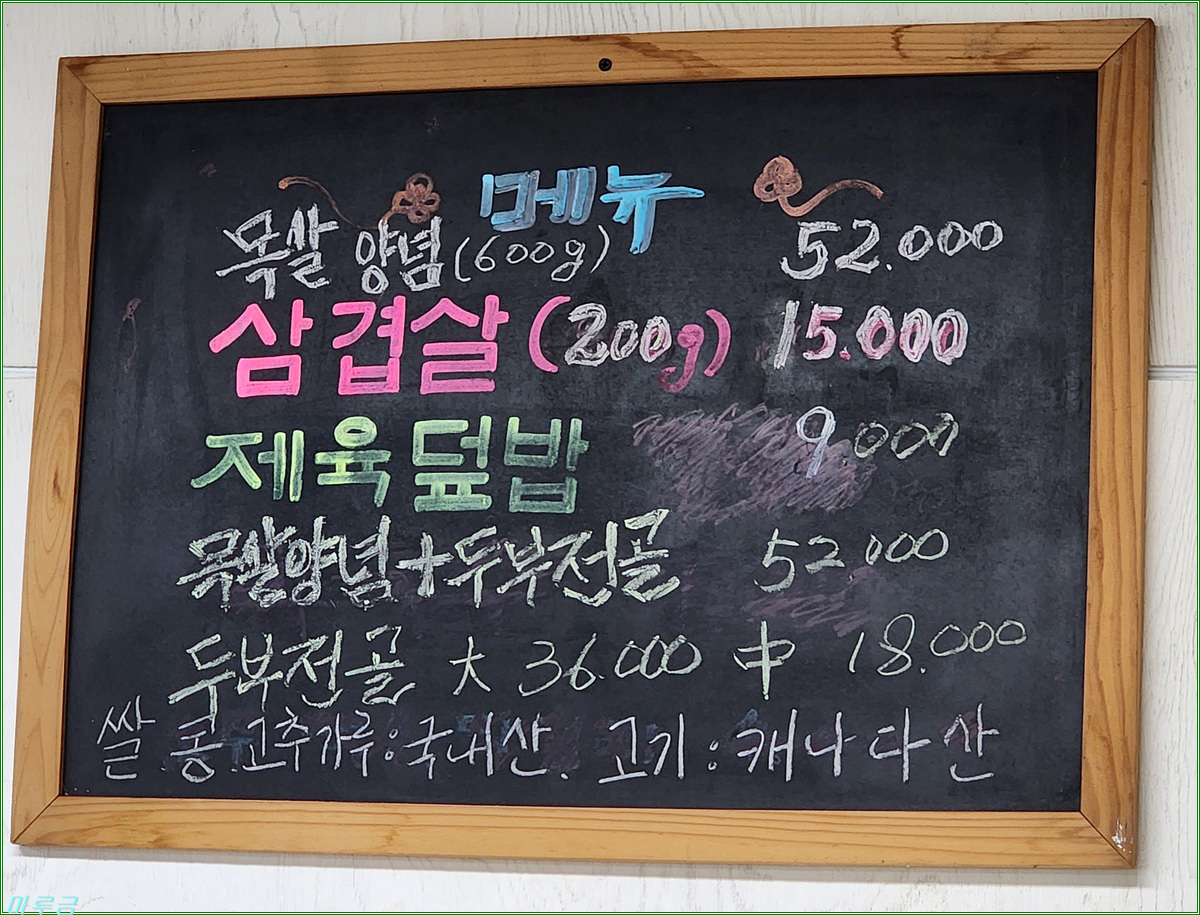 메뉴
목살 양념(600g) 52.000
삼겹살(200g) 15.000
제육덮밥 9,000
목살양념+두부전골 52.000
두부전골 大 36.000 中 18.000
쌀.콩.고추가루:국내산. 고기:캐나다산
마루금